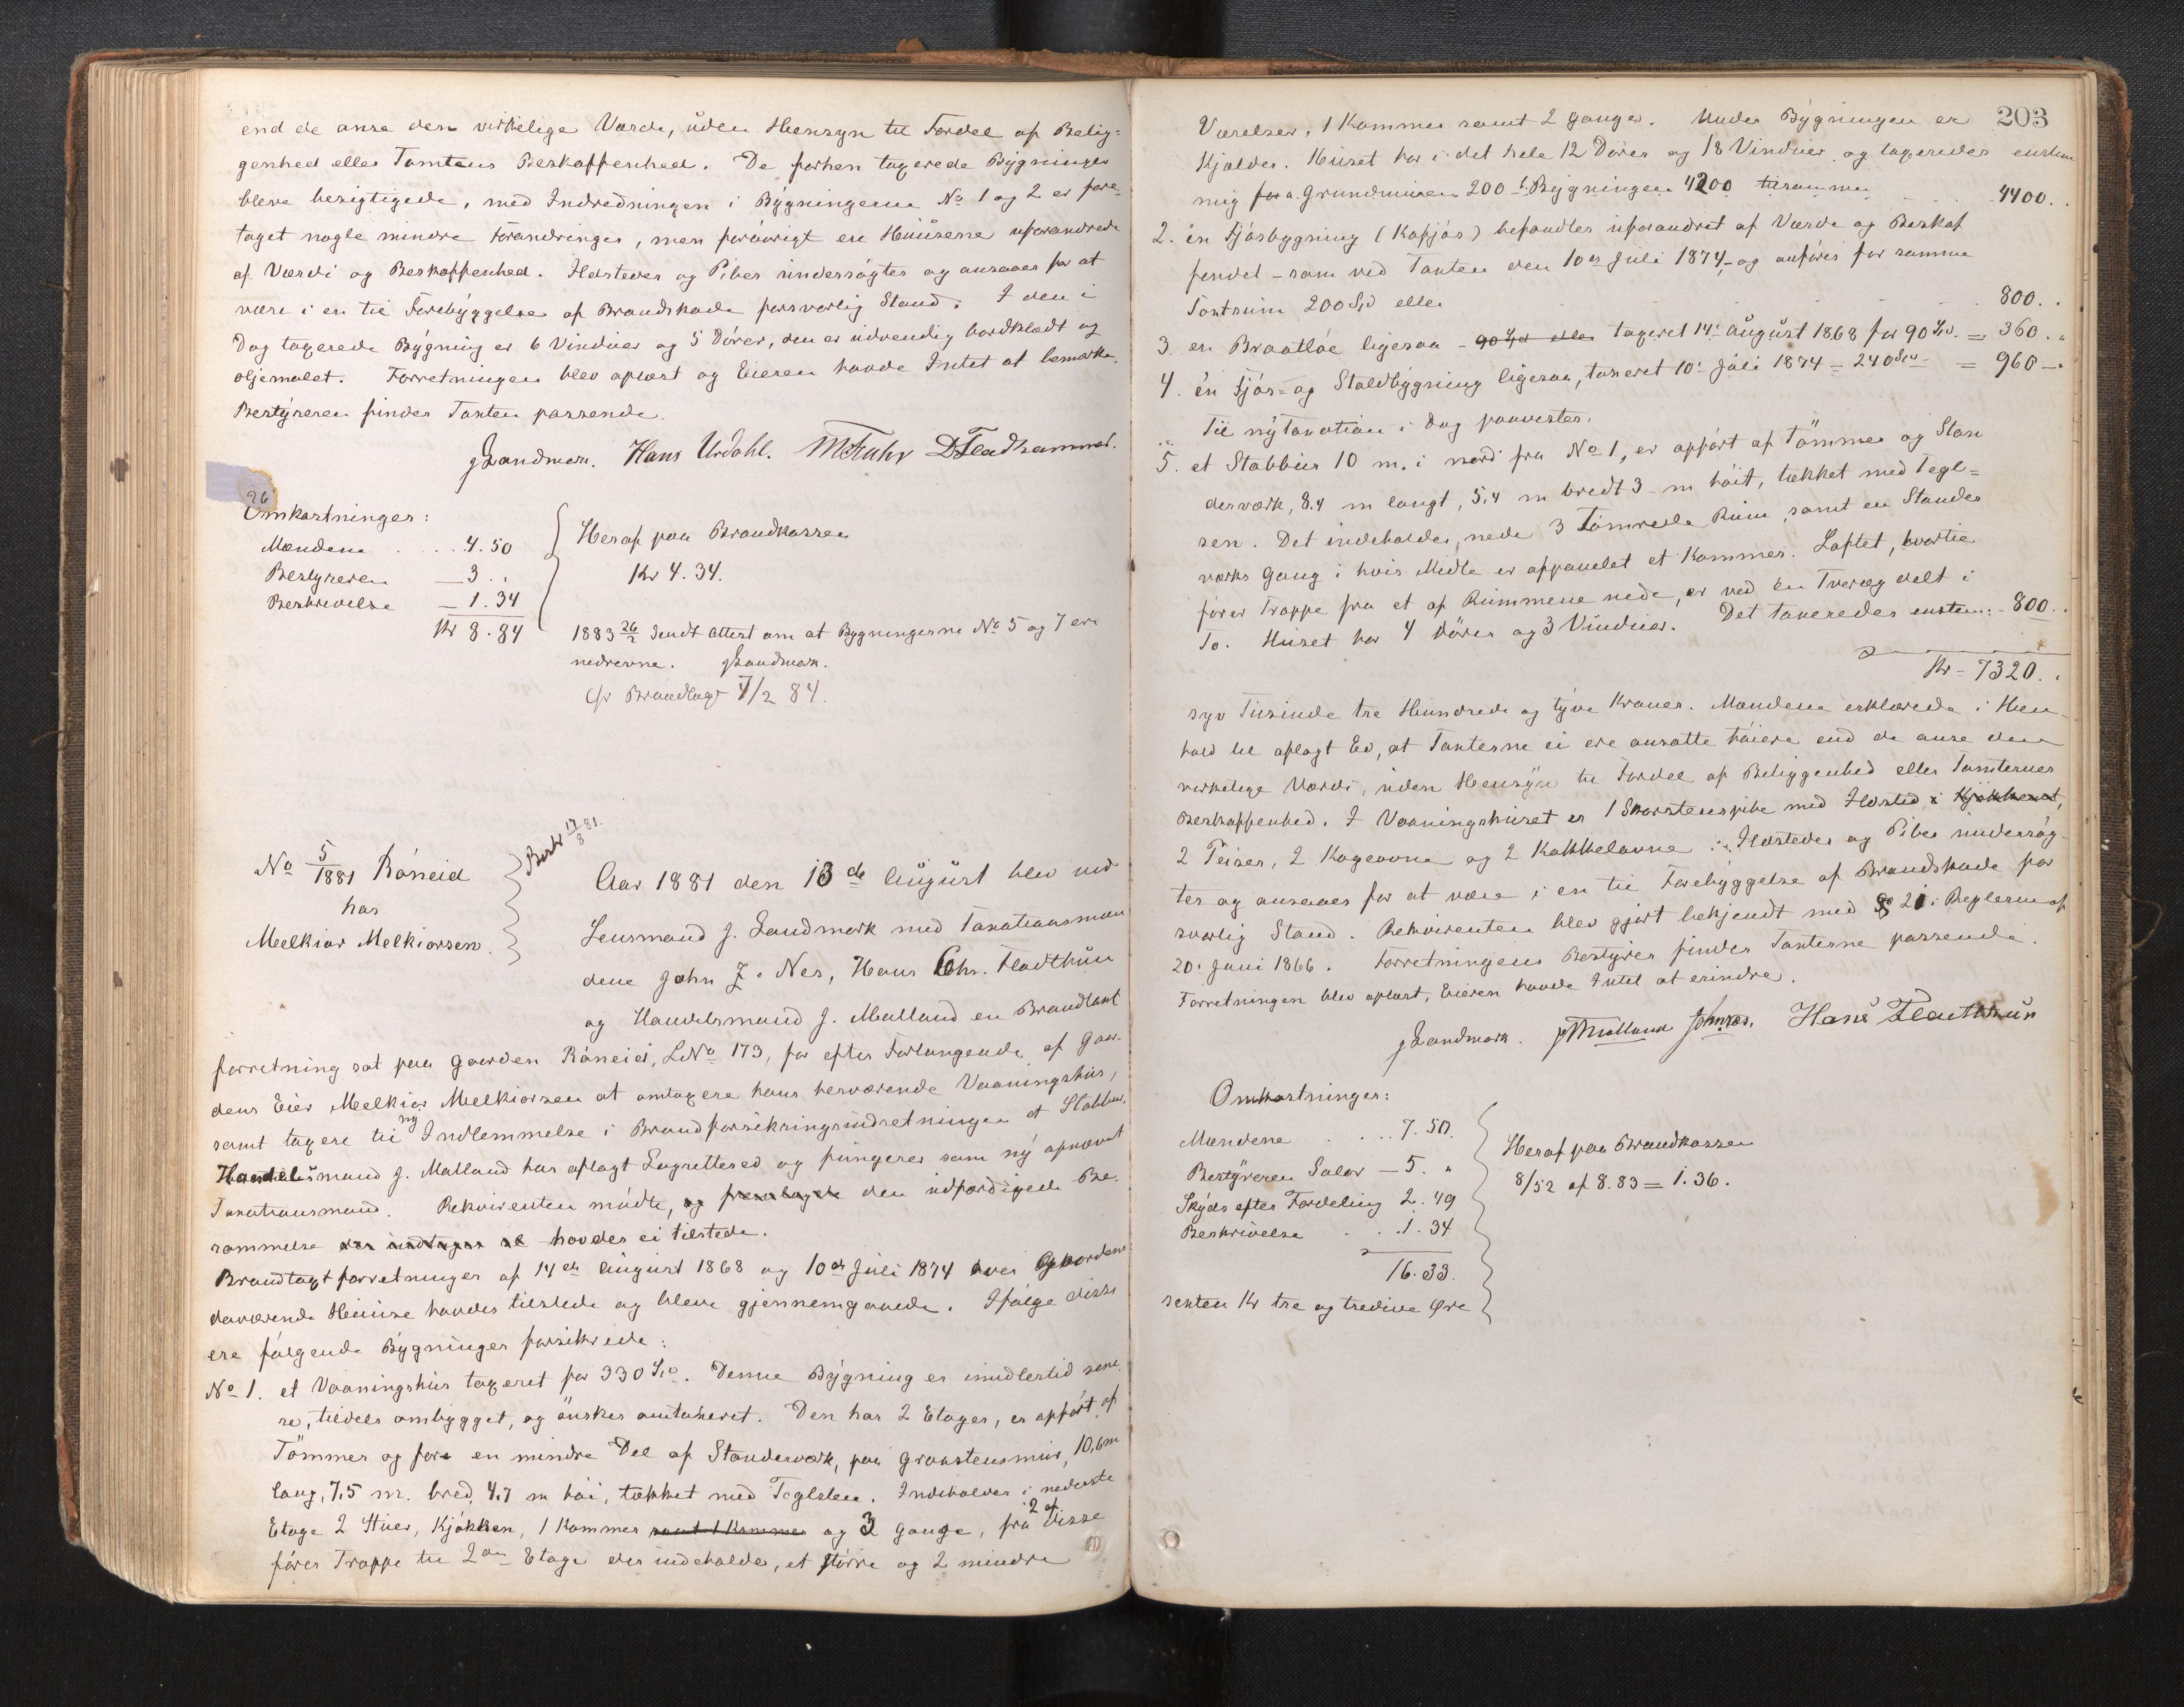 end de anse den virkelige Værdi, uden Hensyn til Fordel af Belig=
genhed eller Tomtens Beskaffenhed. De forhen taxerede Bygninger
bleve besigtigede, med Indredningen i Bygningerne No 1 og 2 er fore-
taget nogle mindre Forandringer, men forövrigt ere Huusene uforandrede
af Værdi og Beskaffenhed. Ildsteder og Piber undersögtes og ansaaes for at
være i en til Forebyggelse af Brandskade forsvarlig Stand. I den i
Dag taxerede Bygning er 6 Vinduer og 5 Dörer, den er udvendig bordklædt og
oljemalet. Forretningen blev oplæst og Eieren havde Intet at bemærke.
Bestyreren finder Taxten passende.
J Landmark. Hans Urdahl. M Fuhr D Fladhammer.
26
Omkostninger:
Mændene . . . 4.50
Bestyreren — 3 . "
Beskrivelse — 1.34
Kr 8.84
Heraf paa Brandkassen
Kr 4.34.
1883 26/2 Sendt Attest om at Bygningerne No 5 og 7 ere
nedrevne. J Landmark.
Cfr Brandtaxt 7/2 84.
No 5/1881 Röneid
hos
Melkior Melkiorsen.
Beskr 17/8 81.
Aar 1881 den 13de August blev ved
Lensmand J. Landmark med Taxationsmæn
dene John J. Nes, Hans Chr. Fladthun
og Handelsmand J. Malland en Brandtaxt
forretning sat paa Gaarden Röneid, LNo 173, for efter Forlangende af Gaar-
dens Eier Melkior Melkiorsen at omtaxere hans herværende Vaaningshus,
samt taxere til ny Indlemmelse i Brandforsikringsindretningen et Stabbur.
Handelsmand J. Malland har aflagt Lagrettesed og fungerer som ny opnævnt
Taxationsmand. Rekvirenten mödte, og fremlagde den udfærdigede Be-
rammelse der indtages al havdes ei tilstede.
Brandtaxtforretninger af 14de August 1868 og 10de Juli 1874 over Gaardens
daværende Huuse havdes tilstede og bleve gjennemgaaede. Ifölge disse
ere fölgende Bygninger forsikrede:
No 1. et Vaaningshus taxeret for 330 Spd. Denne Bygning er imidlertid sene-
re, tildels ombygget, og önskes omtaxeret. Den har 2 Etager, er opfört af
Tömmer og for en mindre Del af Standerværk, paa Graastensmur, 10,6 m
lang, 7,5 m. bred, 4,7 m höi, tækket med Teglsten. Indeholder i nederste
Etage 2 Stuer, Kjökken, 1 Kammer samt 1 Kammer og 3 Gange, fra 2 af disse
förer Trappe til 2den Etage der indeholder, et större og 2 mindre
203
Værelser, 1 Kammer samt 2 Gange. Under Bygningen er
Kjelder. Huset har i det hele 12 Dörer og 18 Vinduer og taxeredes enstem
mig for a. Grundmuren 200 b. Bygningen 4200 tilsammen 4400. "
2. én Fjösbygning (Kofjös) befandtes uforandret af Værdi og Beskaf
fenhed - som ved Taxten den 10de Juli 1874, og anföres for samme
Taxtsum 200 Spd eller 800. "
3. en Braatlöe ligesaa - 90 Spd eller taxeret 14' August 1868 for 90 Spd. = 360. "
4. én Fjös- og Staldbygning ligesaa, taxeret 10' Juli 1874 = 240 Spd = 960 — "
Til ny Taxation i Dag paavistes:
5. et Stabbur 10 m. i nord fra No 1, er opfört af Tömmer og Stan
derværk, 8.4 m langt, 5,4 m bredt 3 m höit, tækket med Tegl=
sten. Det indeholder, nede 3 tömrede Rum, samt en Stander
værks Gang i hvis Midte er afpanelet et Kammer. Loftet, hvortil
förer Trappe fra et af Rummene nede, er ved én Tveræg delt i
To. Huset har 4 Dörer og 3 Vinduer. Det taxeredes enstem: 800. "
Kr - 7320. "
syv Tusinde tre Hundrede og tyve Kroner. Mændene erklærede i Hen
hold til aflagt Ed, at Taxterne ei ere ansatte höiere end de anse den
virkelige Værdi, uden Hensyn til Fordel af Beliggenhed eller Tomternes
Beskaffenhed. I Vaaningshuset er 1 Skorstenspibe med Ildsted i Kjökkenet,
2 Peiser, 2 Kogeovne og 2 Kakkelovne. Ildsteder og Piber undersög
tes og ansaaes for at være i en til Forebyggelse af Brandskade for
svarlig Stand. Rekvirenten blev gjort bekjendt med § 21 i Reglerne af
20' Juni 1866. Forretningens Bestyrer finder Taxterne passende.
Forretningen blev oplæst, Eieren havde Intet at erindre.
J Landmark. J Malland John Nes. Hans Flathun
Omkostninger:
Mændene . . . 7.50.
Bestyreren Salær — 5. "
Skyds efter Fordeling 2.49
Beskrivelse . . 1.34
16.33.
sexten Kr tre og tredive Öre
Heraf paa Brandkassen
8/52 af 8.83 = 1.36.